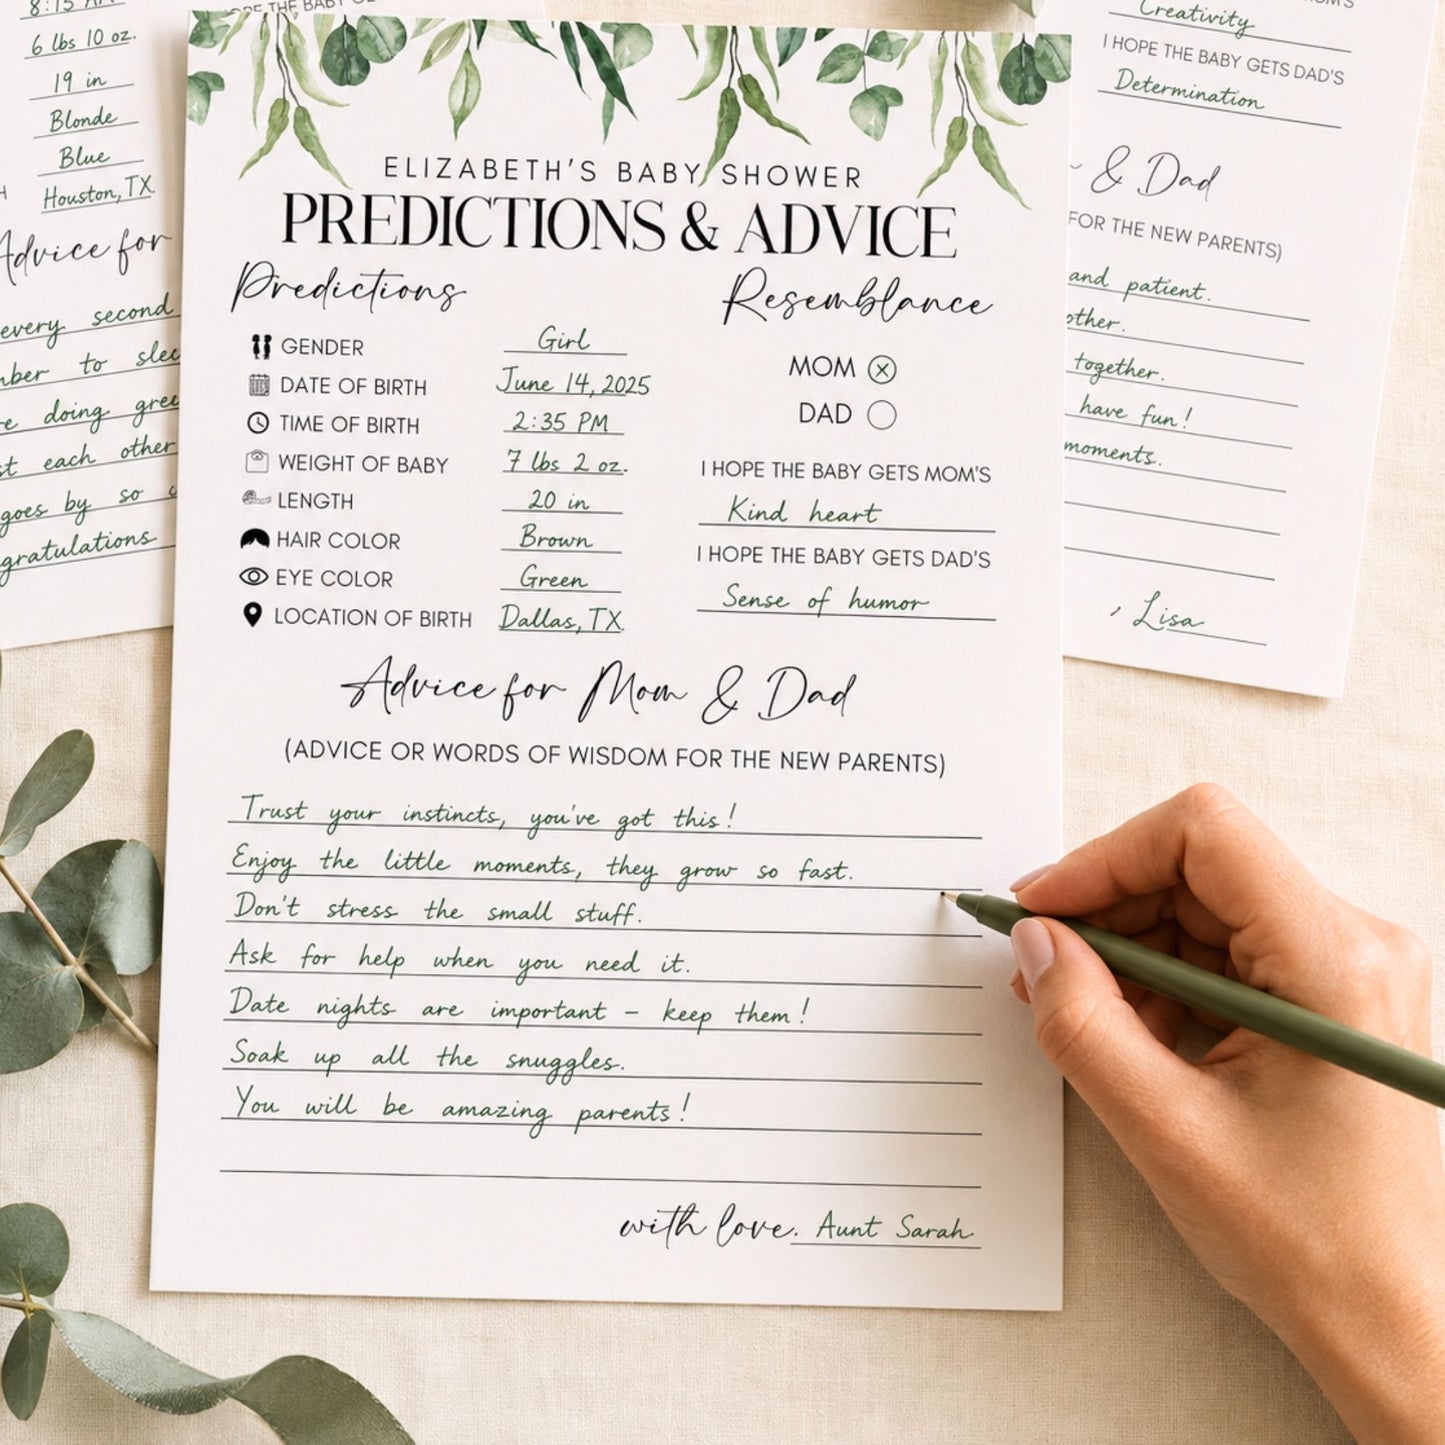 8:15
6 lbs 10 oz.
19 in
Blonde
Blue
Houston, TX
Advice for
every second
to
doing
each other
goes by so
ELIZABETH'S BABY SHOWER
PREDICTIONS & ADVICE
Predictions
GENDER Girl
DATE OF BIRTH June 14, 2025
TIME OF BIRTH 2:35 PM
WEIGHT OF BABY 7 lbs 2 oz.
LENGTH 20 in
HAIR COLOR Brown
EYE COLOR Green
LOCATION OF BIRTH Dallas, TX
Resemblance
MOM
DAD
I HOPE THE BABY GETS MOM'S
Kind heart
I HOPE THE BABY GETS DAD'S
Sense of humor
Advice for Mom & Dad
(ADVICE OR WORDS OF WISDOM FOR THE NEW PARENTS)
Trust your instincts, you've got this!
Enjoy the little moments, they grow so fast.
Don't stress the small stuff.
Ask for help when you need it.
Date nights are important – keep them!
Soak up all the snuggles.
You will be amazing parents!
with love. Aunt Sarah
Creativity
I HOPE THE BABY GETS DAD'S
Determination
& Dad
FOR THE NEW PARENTS)
and patient.
together.
have fun!
moments.
Lisa